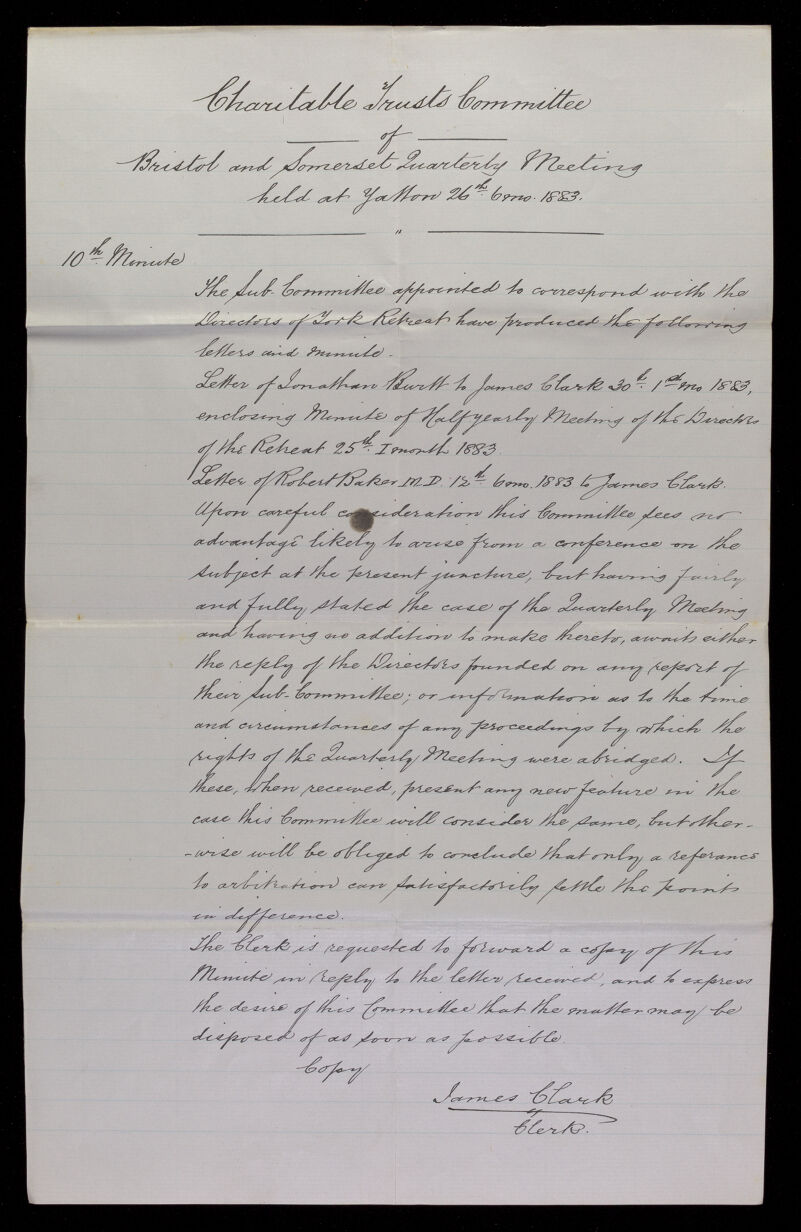 Charitable Trusts Committee
of
Bristol and Somerset Quarterly Meeting
held at Yatton 26th. 6 mo. 1883.
10th Minute
The Sub-Committee appointed to correspond with the
Directors of York Retreat have produced the following
letters and minute -
Letter of Jonathan Burtt to James Clark 30th. 1st mo 1883,
enclosing Minute of Halfyearly Meeting of the Directors
of the Retreat 25th. I month 1883.
Letter of Robert Baker M.D. 12th. 6 mo. 1883 to James Clark.
Upon careful consideration this Committee sees no
advantage likely to arise from a conference on the
subject at the present juncture, but having fairly
and fully stated the case of the Quarterly Meeting
and having no addition to make thereto, awaits either
the reply of the Directors founded on any report of
their Sub-Committee; or information as to the time
and circumstances of any proceedings by which the
rights of the Quarterly Meeting were abridged. If
these, when received, present any new feature in the
case this Committee will consider the same, but other-
-wise will be obliged to conclude that only a referance
to arbitration can satisfactorily settle the points
in difference.
The Clerk is requested to forward a copy of this
Minute in reply to the letter received, and to express
the desire of this Committee that the matter may be
disposed of as soon as possible.
Copy
James Clark
Clerk.